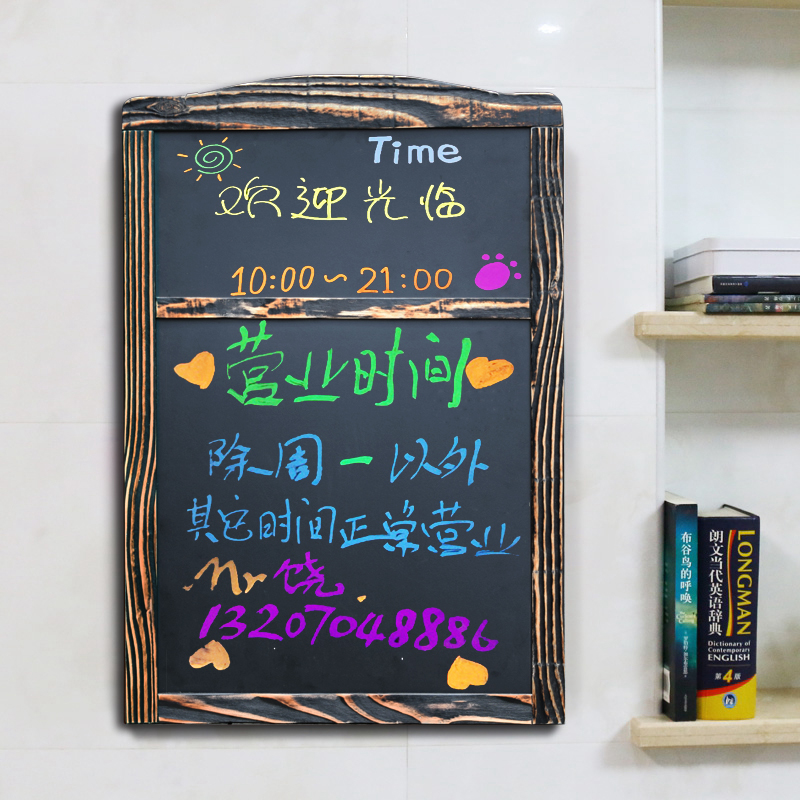 Time
欢迎光临
10:00~21:00
营业时间
除周一以外
其它时间正常营业
Mr 饶
13207048886
布谷鸟的呼唤
朗文当代英语辞典
LONGMAN
Dictionary of
Contemporary
ENGLISH
第4版